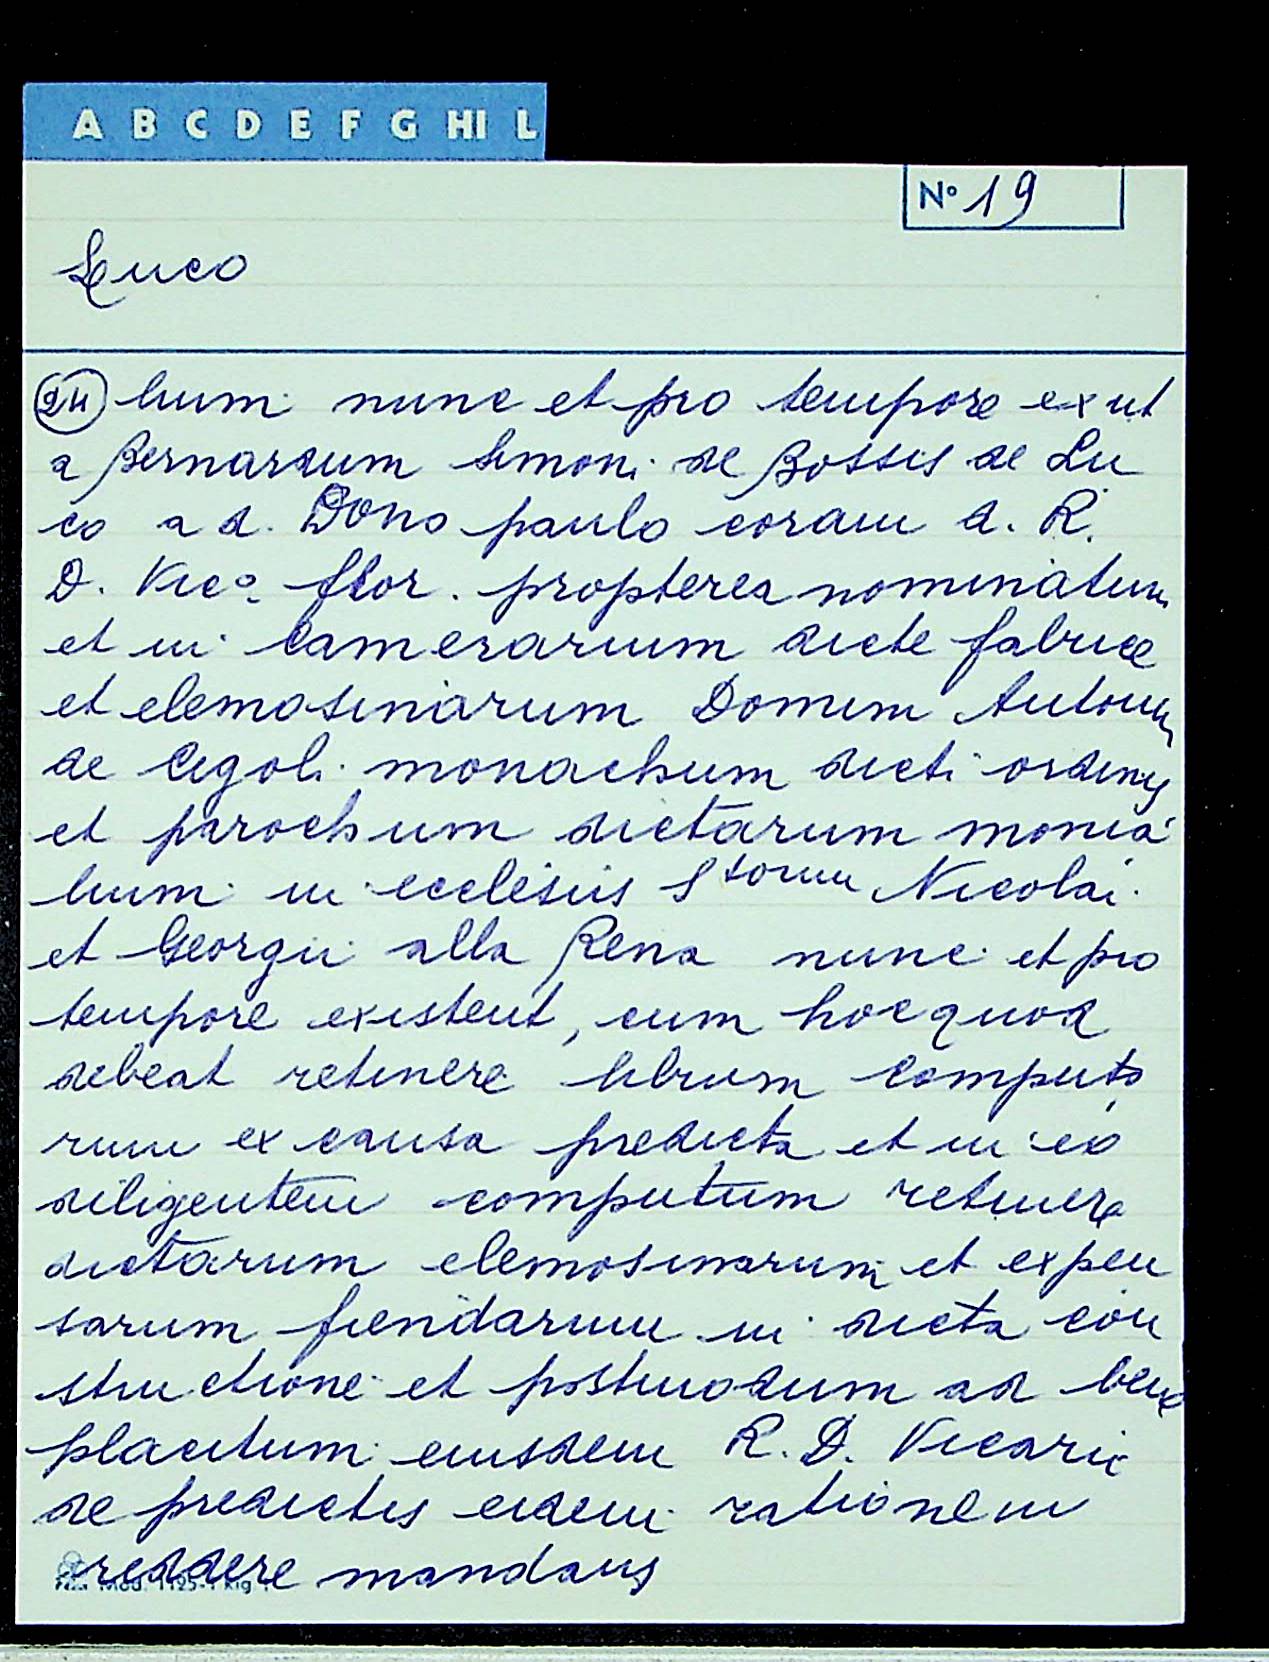 A B C D E F G HI L
N° 19
Luco
24 lium nunc et pro tempore ex ut
a Bernardum Simoni de Bossis de Lu
co a d. Dono paulo coram d. R.
D. Vic° flor. propterea nominatum
et in Camerarium dicte fabrice
et elemosinarum Domim Antoniu
de Cigoli monachum dicti ordinis
et parochum dictarum monia
lium in ecclesiis Storum Nicolai
et Georgii alla Rena nunc et pro
tempore existent, cum hoc quod
debeat retinere librum computo
rum ex causa predicta et in eo
diligentem computum retinere
dictarum elemosinarum et expen
sarum fiendarum in dicta con
structione et postmodum ad bene
placitum eiusdem R. D. Vicarii
de predictis eidem rationem
reddere mandans